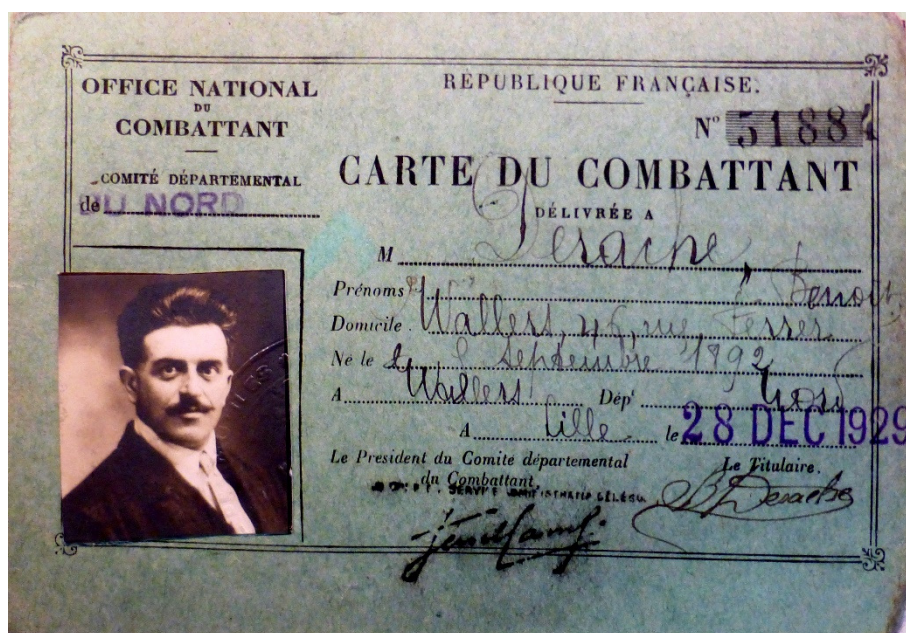 OFFICE NATIONAL
DU
COMBATTANT
COMITÉ DÉPARTEMENTAL
de DU NORD
RÉPUBLIQUE FRANÇAISE.
N° 51884
CARTE DU COMBATTANT
DÉLIVRÉE A
M Desache
Prénoms Benoit
Domicile Wallers, 46, rue Ferrer
Né le 8 Septembre 1892
A Wallers Dépt Nord
A Lille le 28 DEC 1929
Le President du Comite départemental
du Combattant,
Le Titulaire.
B Desache